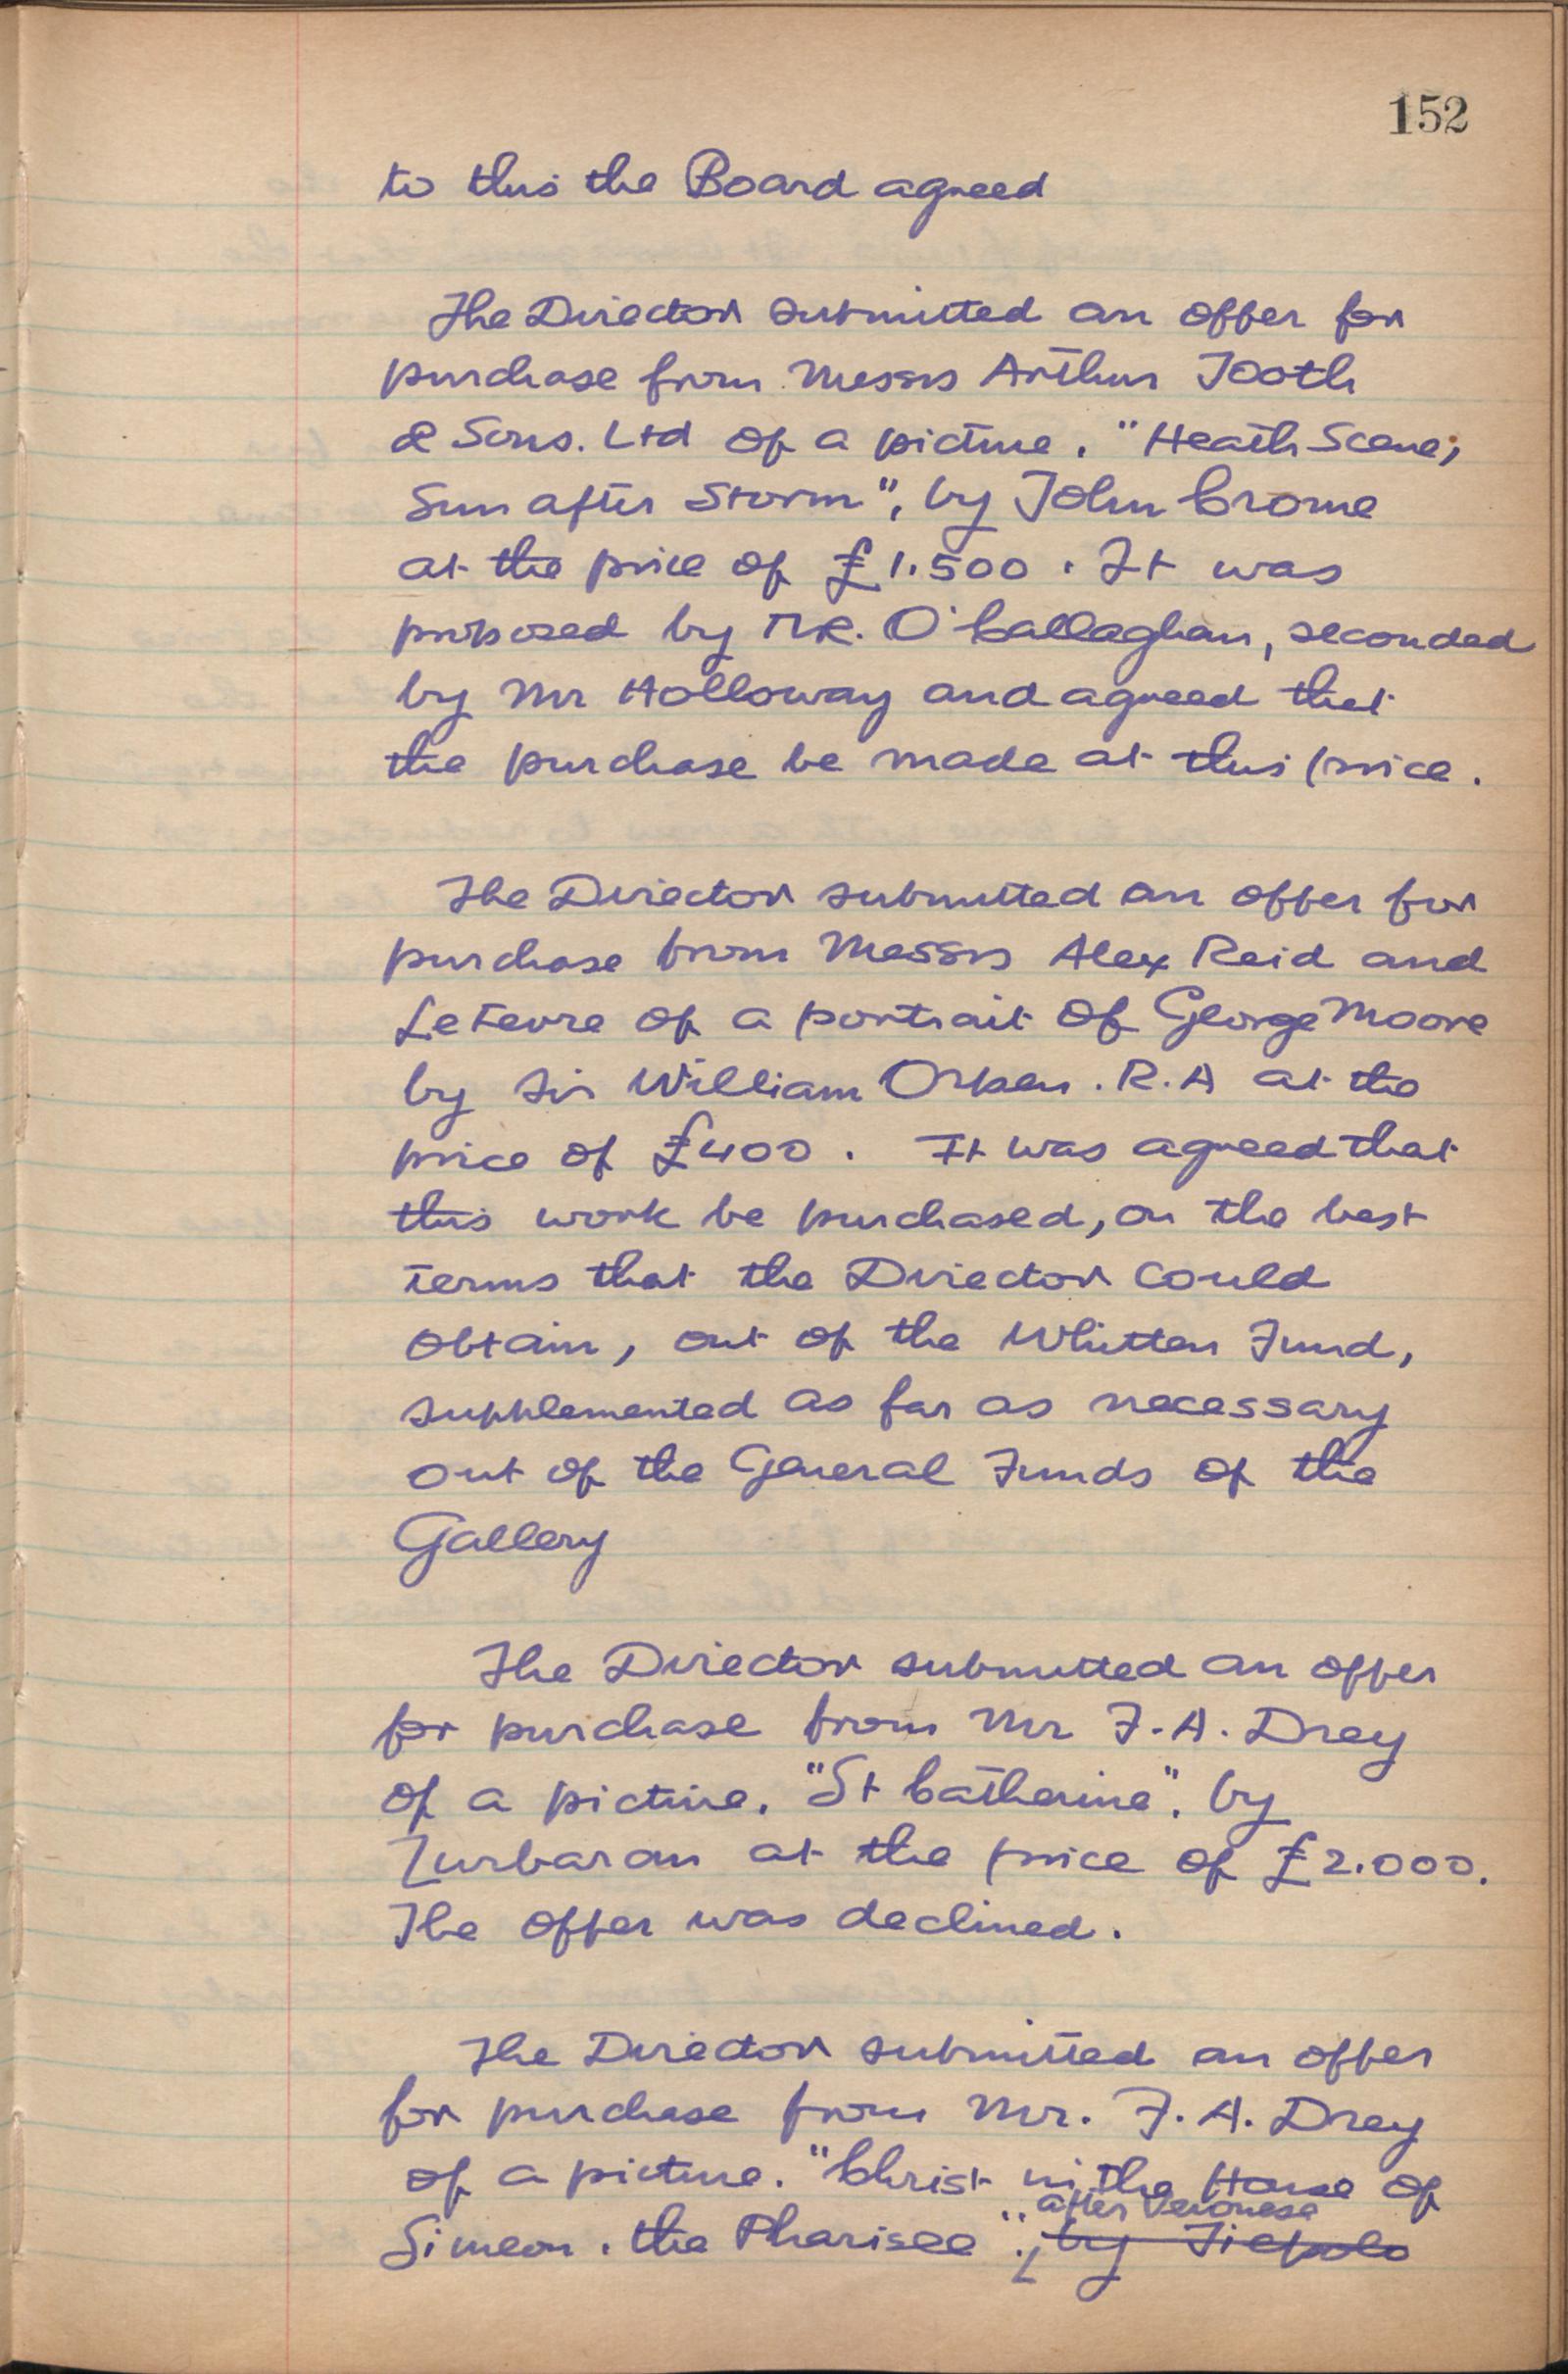 152
to this the Board agreed
The Director submitted an offer for
purchase from Messrs Arthur Tooth
& Sons. Ltd of a picture. "Heath Scene;
Sun after Storm", by John Crome
at the price of £1.500. It was
proposed by MR. O'Callaghan, seconded
by Mr Holloway and agreed that
the purchase be made at this price.
The Director submitted an offer for
purchase from Messrs Alex Reid and
Lefevre of a portrait of George Moore
by Sir William Orpen. R.A at the
price of £400. It was agreed that
this work be purchased, on the best
terms that the Director could
obtain, out of the Whitten Fund,
supplemented as far as necessary
out of the General Funds of the
Gallery
The Director submitted an offer
for purchase from Mr F.A. Drey
of a picture. "St Catherine". by
Zurbaran at the price of £2.000.
The offer was declined.
The Director submitted an offer
for purchase from Mr. F.A. Drey
of a picture. "Christ in the House of
after Veronese
Simeon. the Pharisee", by Tiepolo